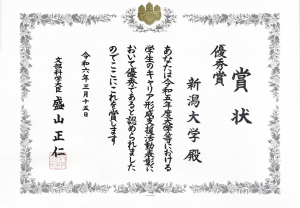 賞状
優秀賞
新潟大学 殿
あなたは令和五年度大学等における
学生のキャリア形成支援活動表彰に
おいて優秀であると認められました
のでここにこれを賞します
令和六年三月十五日
文部科学大臣 盛山正仁